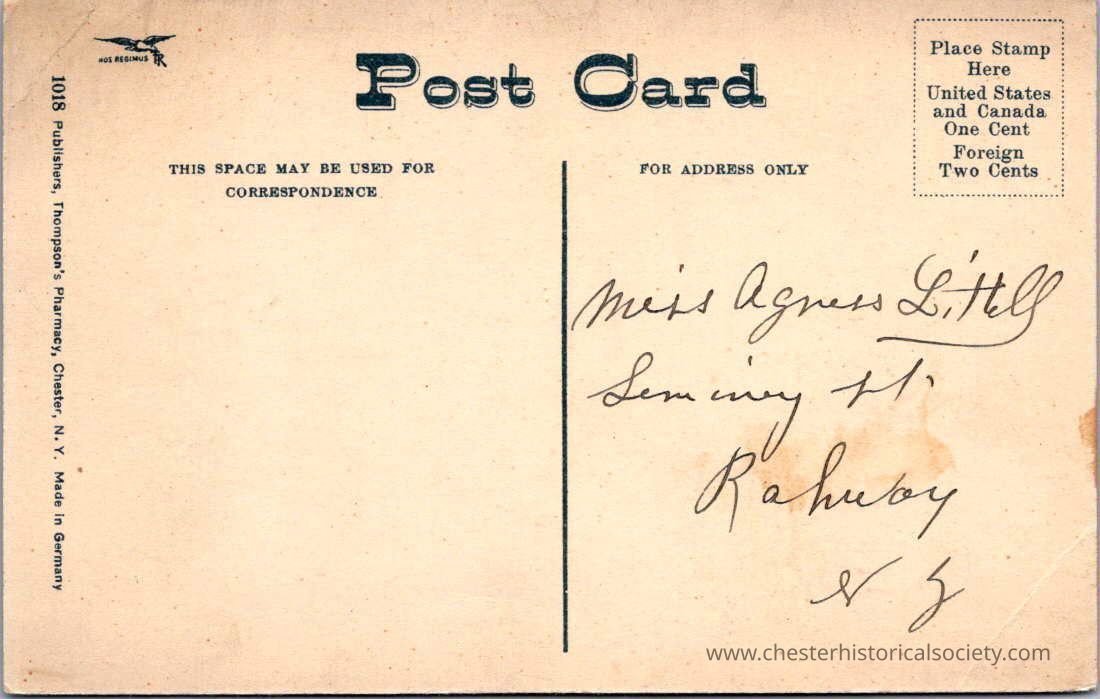 NOS REGIMUS TR
Post Card
Place Stamp
Here
United States
and Canada
One Cent
Foreign
Two Cents
THIS SPACE MAY BE USED FOR
CORRESPONDENCE
FOR ADDRESS ONLY
1018 Publishers, Thompson's Pharmacy, Chester, N. Y. Made in Germany
Miss Agness Littell
Seminey st.
Rahway
N J
www.chesterhistoricalsociety.com